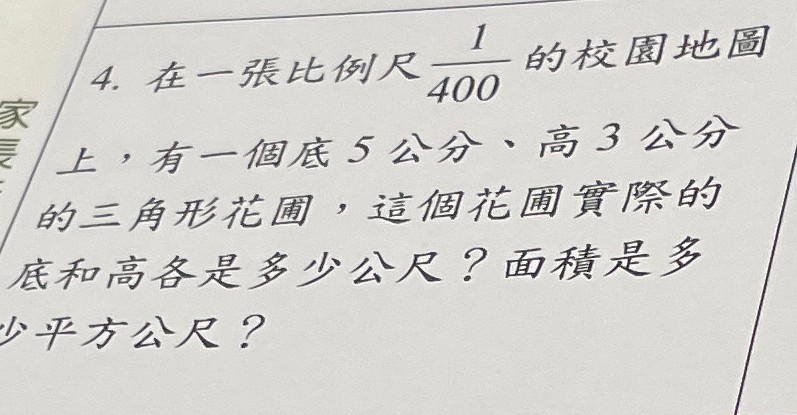 家
長
4. 在一張比例尺 1/400 的校園地圖
上,有一個底 5 公分、高 3 公分
的三角形花圃,這個花圃實際的
底和高各是多少公尺?面積是多
少平方公尺?